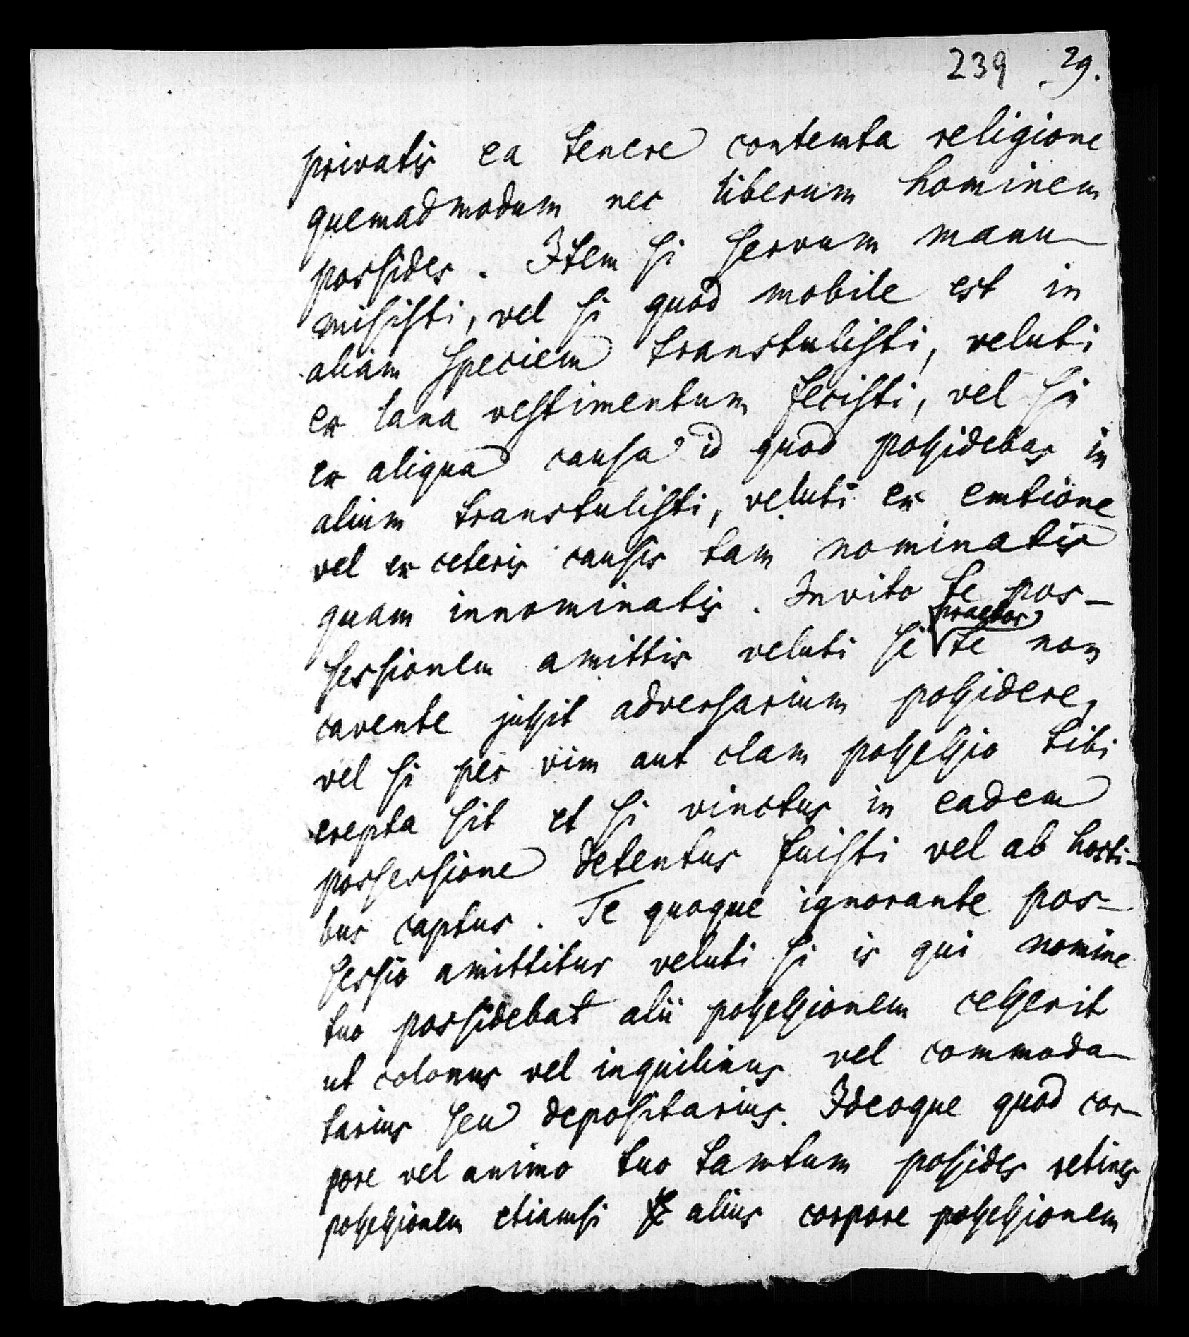 239 29.
privatis ea tenere contemta religione
quemadmodum nec liberum hominem
possides. Item si servum manu-
misisti, vel si quod mobile est in
aliam speciem transtulisti, veluti
ex lana vestimentum fecisti, vel si
ex aliqua causa id quod possidebas in
alium transtulisti, veluti ex emtione
vel ex ceteris causis tam nominatis
quam innominatis. Invito te pos-
praetor
sessionem amittis veluti si te non
cavente jussit adversarium possidere,
vel si per vim aut clam possessio tibi
erepta sit et si vinctus in eadem
possessione detentus fuisti vel ab hosti-
bus captus. Te quoque ignorante pos-
sessio amittitur veluti si is qui nomine
tuo possidebat alii possessionem cesserit
ut colonus vel inquilinus vel commoda-
tarius seu depositarius. Ideoque quod cor-
pore vel animo tuo tamtum possides retines
possessionem etiamsi alius corpore possessionem